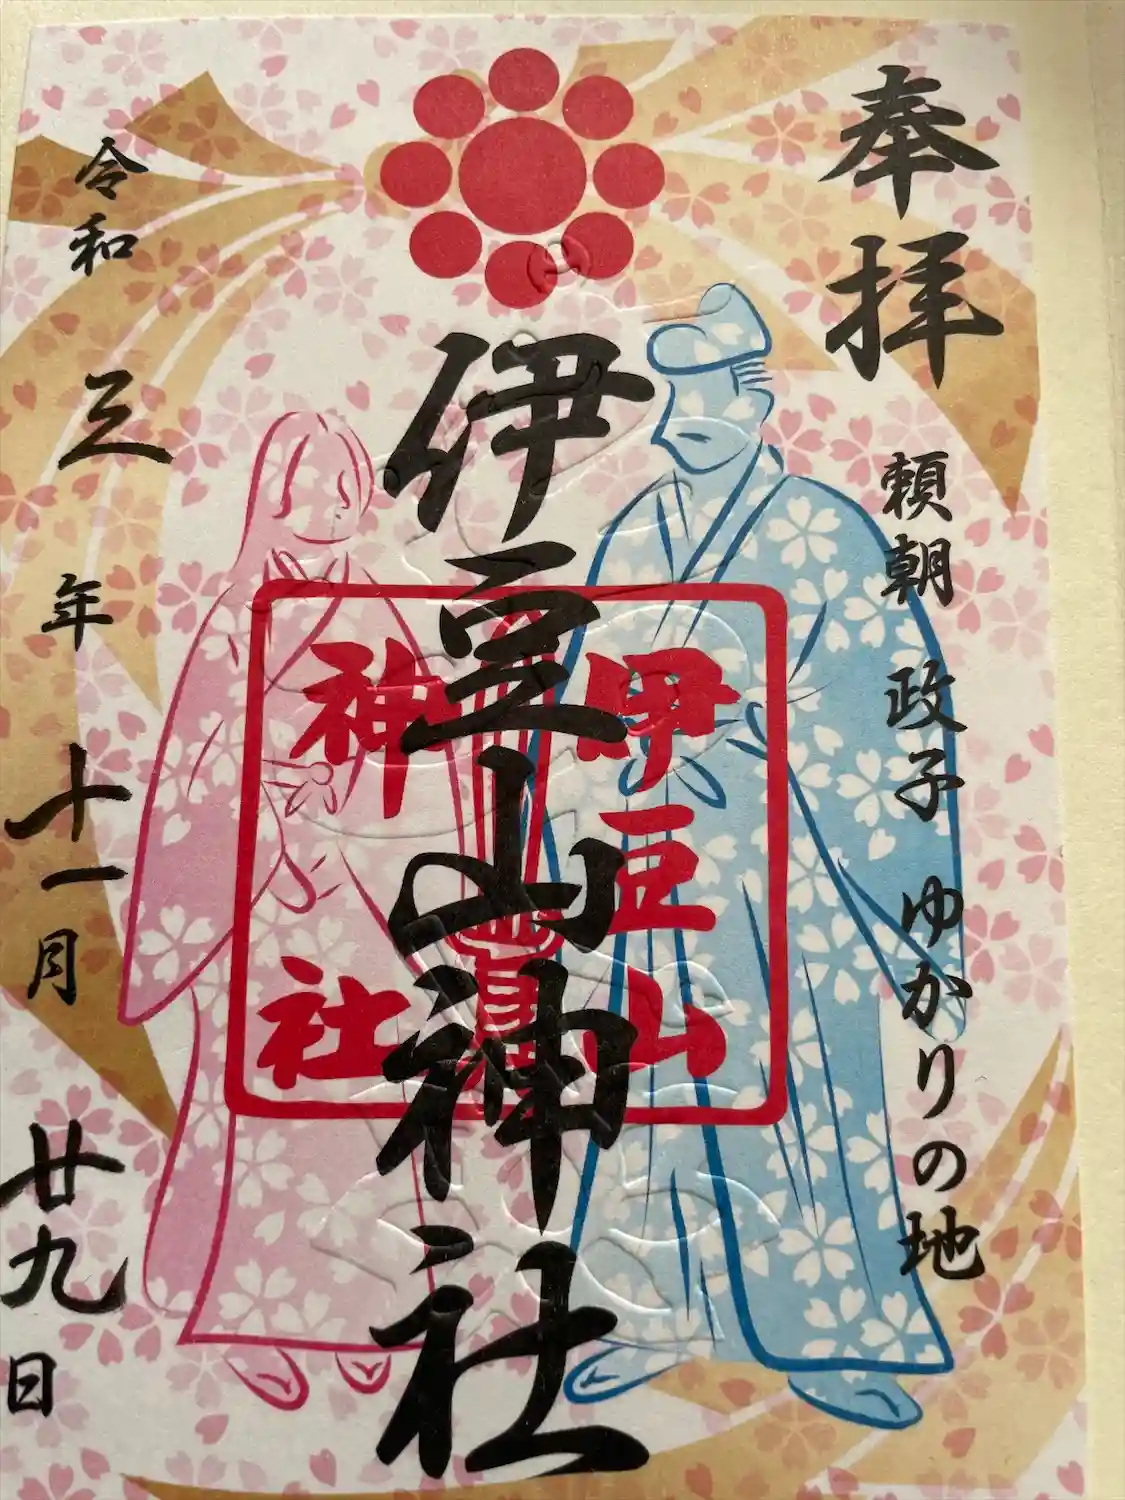 奉拝
頼朝 政子 ゆかりの地
伊豆山神社
伊豆山
神社
令和三年十一月廿九日